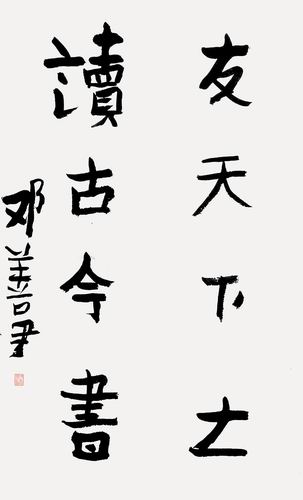 友天下士
讀古今書
邓善書